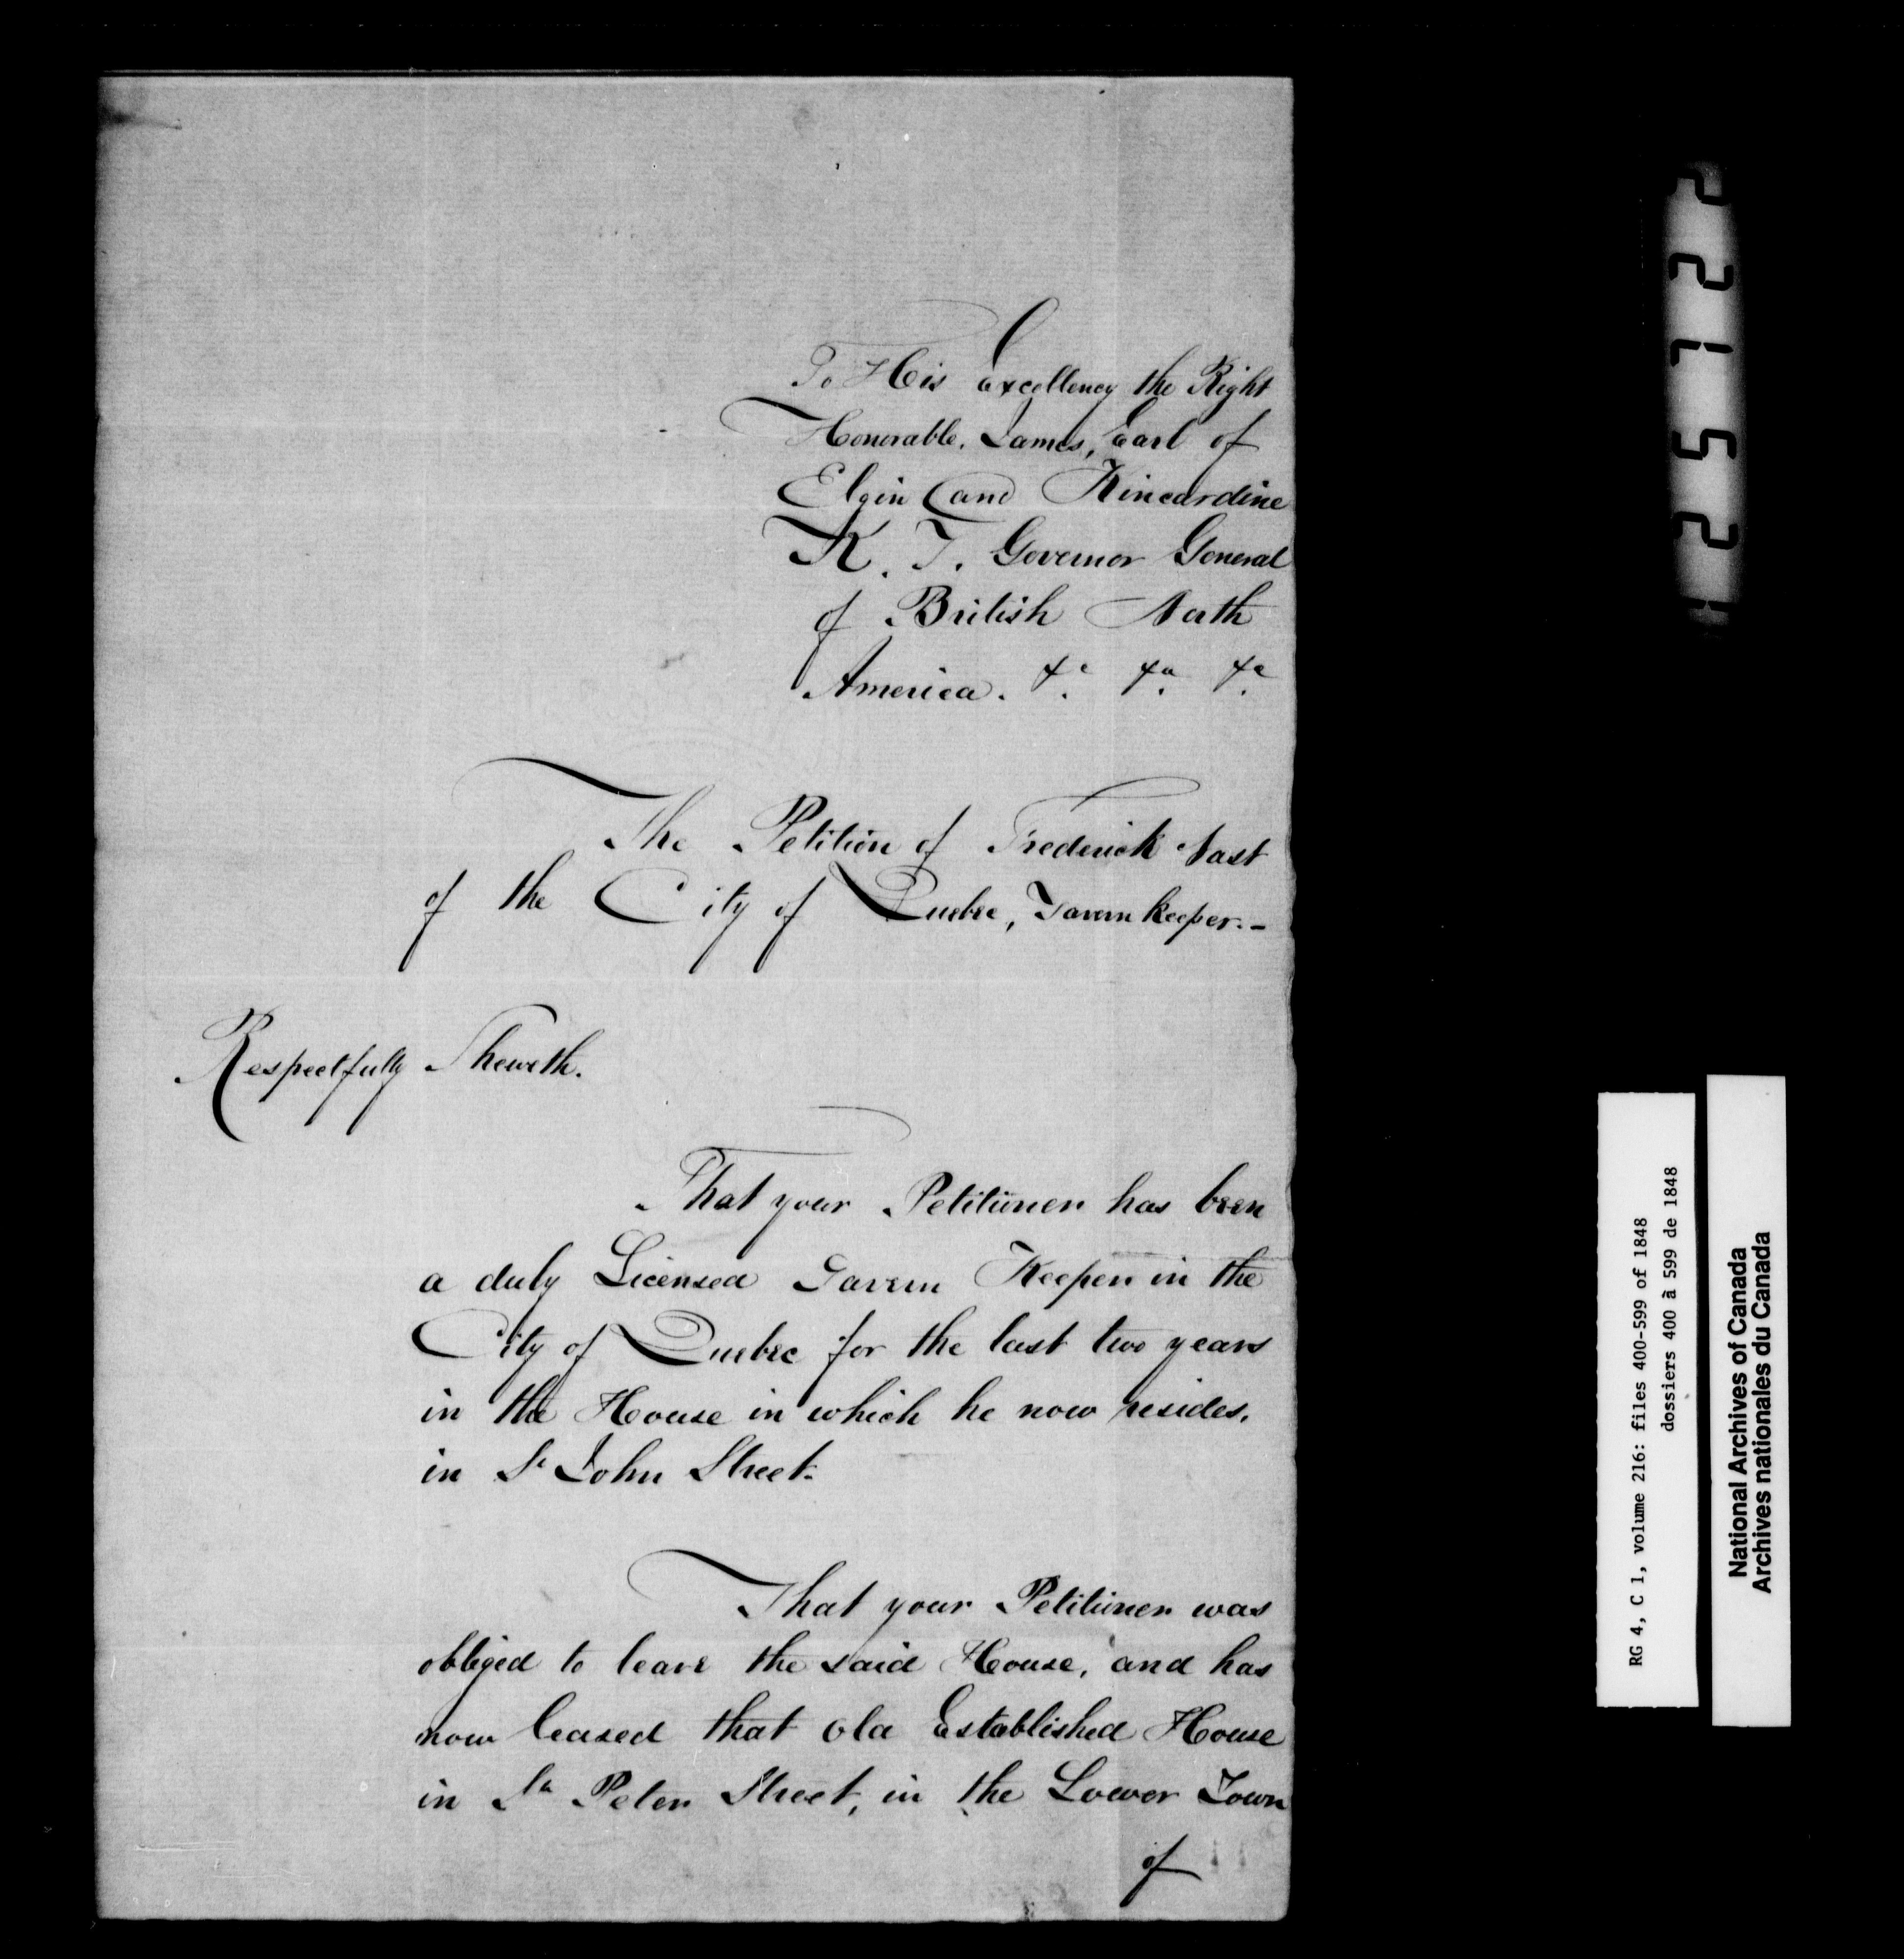 To His Excellency the Right
Honorable, James, Earl of
Elgin and Kincardine
K. T. Governor General
of British North
America. &c &a &a
The Petition of Frederick Nast
of the City of Quebec, Tavern keeper.-
Respectfully Sheweth.
That your Petitioner has been
a duly Licensed Tavern Keeper in the
City of Quebec for the last two years
in the House in which he now resides,
in St John Street.
That your Petitioner was
obliged to leave the said House, and has
now leased that old Established House
in St Peter Street, in the Lower Town
of
RG 4, C 1, volume 216: files 400-599 of 1848
dossiers 400 à 599 de 1848
National Archives of Canada
Archives nationales du Canada